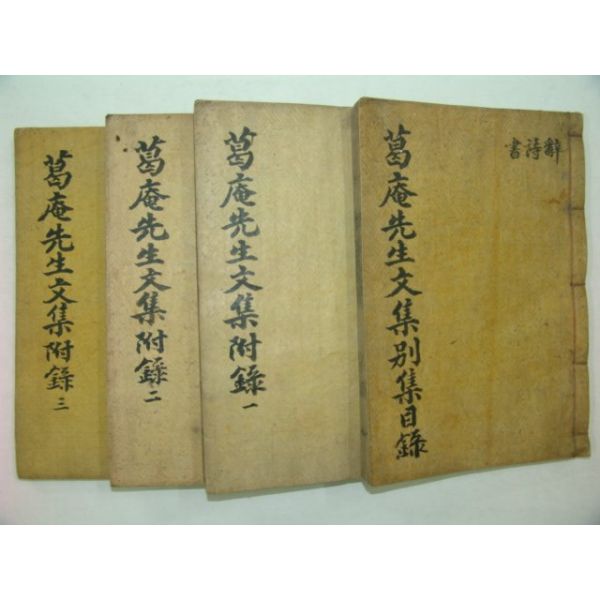 辭詩書
葛庵先生文集別集目錄
葛庵先生文集附錄一
葛庵先生文集附錄二
葛庵先生文集附錄三